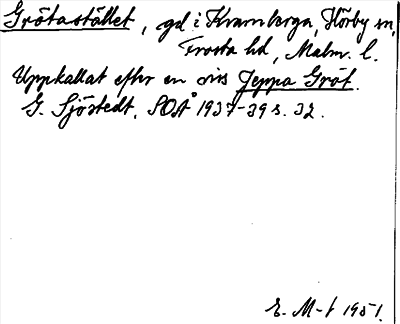 Grötastället, gd i Kramberga, Hörby sn,
Frosta hd, Malm. l.
Uppkallat efter en viss Jeppa Gröt.
G. Sjöstedt, SOÅ 1937-39 s. 32.
E. M-f 1951.